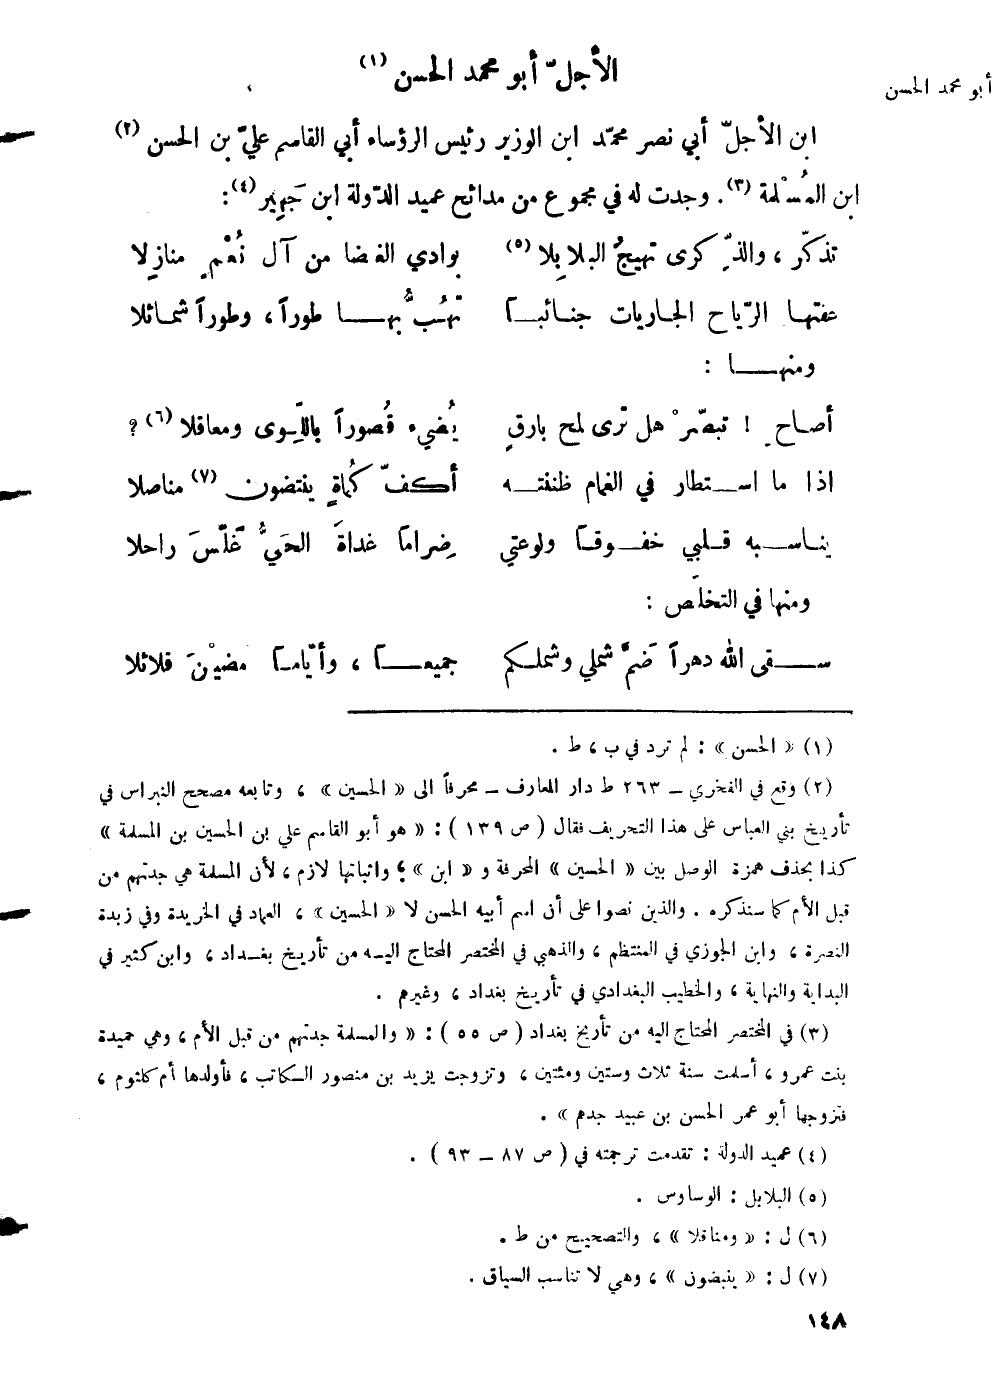 أبو محمد الحسن
الأجلّ أبو محمد الحسن (١)
ابن الأجلّ أبي نصر محمّد ابن الوزير رئيس الرؤساء أبي القاسم عليّ بن الحسن (٢)
ابن المُسْلمة (٣). وجدت له في مجموع من مدائح عميد الدّولة ابن جَهِير (٤):
تذكّر ، والذّكرى تهيجُ البلابِلا (٥) بوادي الغضا من آل نُعْمٍ منازِلا
عفتها الرّياح الجاريات جنائباً تهُبُّ بها طوراً ، وطوراً شمائلا
ومنها :
أصاحِ ! تبصّرْ هل ترى لمح بارقٍ يُضيء قُصوراً باللّوى ومعاقلا (٦) ؟
اذا ما استطار في الغمام ظننته أكفّ كُماةٍ ينتضون (٧) مناصلا
يناسبه قلبي خفوقاً ولوعتي ضِراماً غداةَ الحَيُّ غلّسَ راحلا
ومنها في التخلّص :
سقى الله دهراً ضمَّ شملي وشملكم جميعاً ، وأيّاماً مضيْنَ قلائلا
(١) « الحسن » : لم ترد في ب ، ط .
(٢) وقع في الفخري – ٢٦٣ ط دار المعارف – محرفاً الى « الحسين » ، وتابعه مصحح النبراس في
تأريخ بني العباس على هذا التحريف فقال ( ص ١٣٩ ) : « هو أبو القاسم علي بن الحسين بن المسلمة »
كذا بحذف همزة الوصل بين « الحسين » المحرفة و « ابن » ؛ واثباتها لازم ، لأن المسلمة هي جدتهم من
قبل الأم كما سنذكره . والذين نصوا على أن اسم أبيه الحسن لا « الحسين » ، العماد في الخريدة وفي زبدة
النصرة ، وابن الجوزي في المنتظم ، والذهبي في المختصر المحتاج اليه من تأريخ بغداد ، وابن كثير في
البداية والنهاية ، والخطيب البغدادي في تأريخ بغداد ، وغيرهم .
(٣) في المختصر المحتاج اليه من تأريخ بغداد ( ص ٥٥ ) : « والمسلمة جدتهم من قبل الأم ، وهي حميدة
بنت عمرو ، أسلمت سنة ثلاث وستين ومئتين ، وتزوجت يزيد بن منصور الكاتب ، فأولدها أم كلثوم ،
فتزوجها أبو عمر الحسن بن عبيد جدهم » .
(٤) عميد الدولة : تقدمت ترجمته في ( ص ٨٧ – ٩٣ ) .
(٥) البلابل : الوساوس .
(٦) ل : « ومناقلا » ، والتصحيح من ط .
(٧) ل : « ينبضون » ، وهي لا تناسب السياق .
١٤٨